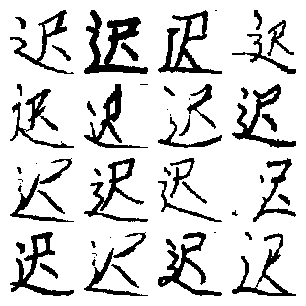 迟迟迟迟
迟迟迟迟
迟迟迟迟
迟迟迟迟